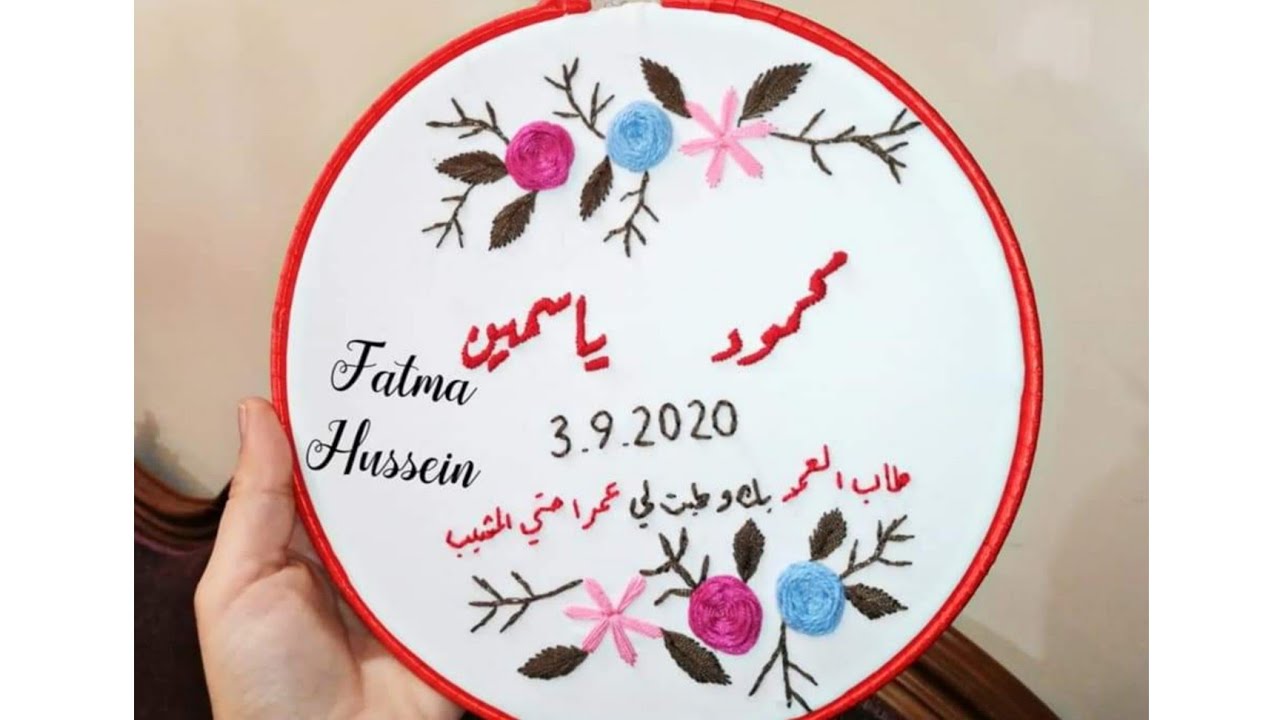 محمود ياسمين
Fatma
Hussein
3.9.2020
طاب العمر بك وطبت لي عمرا حتي المشيب